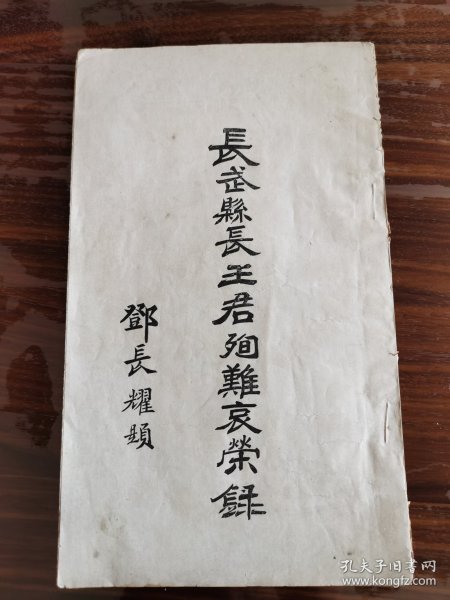 長武縣長王君殉難哀榮錄
鄧長耀題
孔夫子旧书网
www.kongfz.com